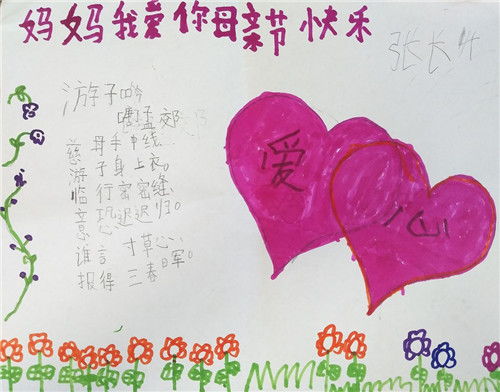 妈妈我爱你母亲节快乐
张长
游子吟
唐孟郊
慈母手中线,
游子身上衣。
临行密密缝,
意恐迟迟归。
谁言寸草心,
报得三春晖。
爱心